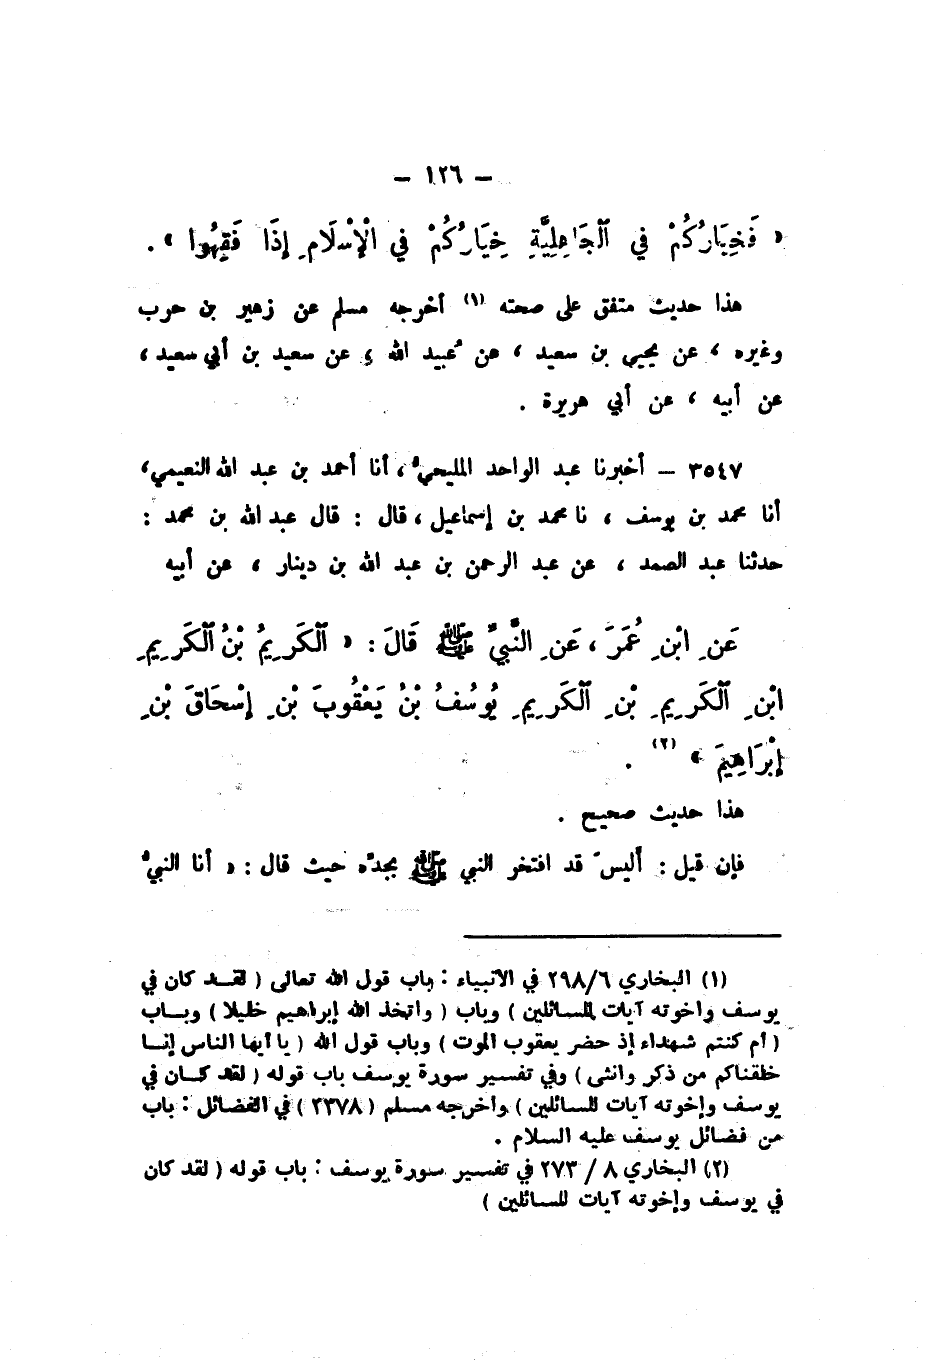 – ١٢٦ –
« فَخِيَارُكُمْ فِي الْجَاهِلِيَّةِ خِيَارُكُمْ فِي الْإِسْلَامِ إِذَا فَقِهُوا » .
هذا حديث متفق على صحته (١) أخرجه مسلم عن زهير بن حرب
وغيره ، عن يحيى بن سعيد ، عن عُبيد الله ، عن سعيد بن أبي سعيد ،
عن أبيه ، عن أبي هريرة .
٣٥٤٧ – أخبرنا عبد الواحد المليحيُّ ، أنا أحمد بن عبد الله النعيمي ،
أنا محمد بن يوسف ، نا محمد بن إسماعيل ، قال : قال عبد الله بن محمد :
حدثنا عبد الصمد ، عن عبد الرحمن بن عبد الله بن دينار ، عن أبيه
عَنِ ابْنِ عُمَرَ ، عَنِ النَّبِيِّ ﷺ قَالَ : « الْكَرِيمُ بْنُ الْكَرِيمِ
ابْنِ الْكَرِيمِ بْنِ الْكَرِيمِ يُوسُفُ بْنُ يَعْقُوبَ بْنِ إِسْحَاقَ بْنِ
إِبْرَاهِيمَ » (٢) .
هذا حديث صحيح .
فإن قيل : أليسَ قد افتخر النبي ﷺ بجدِّه حيث قال : « أنا النبيُّ
(١) البخاري ٢٩٨/٦ في الانبياء : باب قول الله تعالى ( لقــد كان في
يوسف واخوته آيات للسائلين ) وباب ( واتخذ الله إبراهيم خليلا ) وبــاب
( أم كنتم شهداء إذ حضر يعقوب الموت ) وباب قول الله ( يا أيها الناس إنــا
خلقناكم من ذكر وانثى ) وفي تفسير سورة يوسف باب قوله ( لقد كــان في
يوسف وإخوته آيات للسائلين ) واخرجه مسلم ( ٢٣٧٨ ) في الفضائل : باب
من فضائل يوسف عليه السلام .
(٢) البخاري ٨ / ٢٧٣ في تفسير سورة يوسف : باب قوله ( لقد كان
في يوسف وإخوته آيات للسائلين )